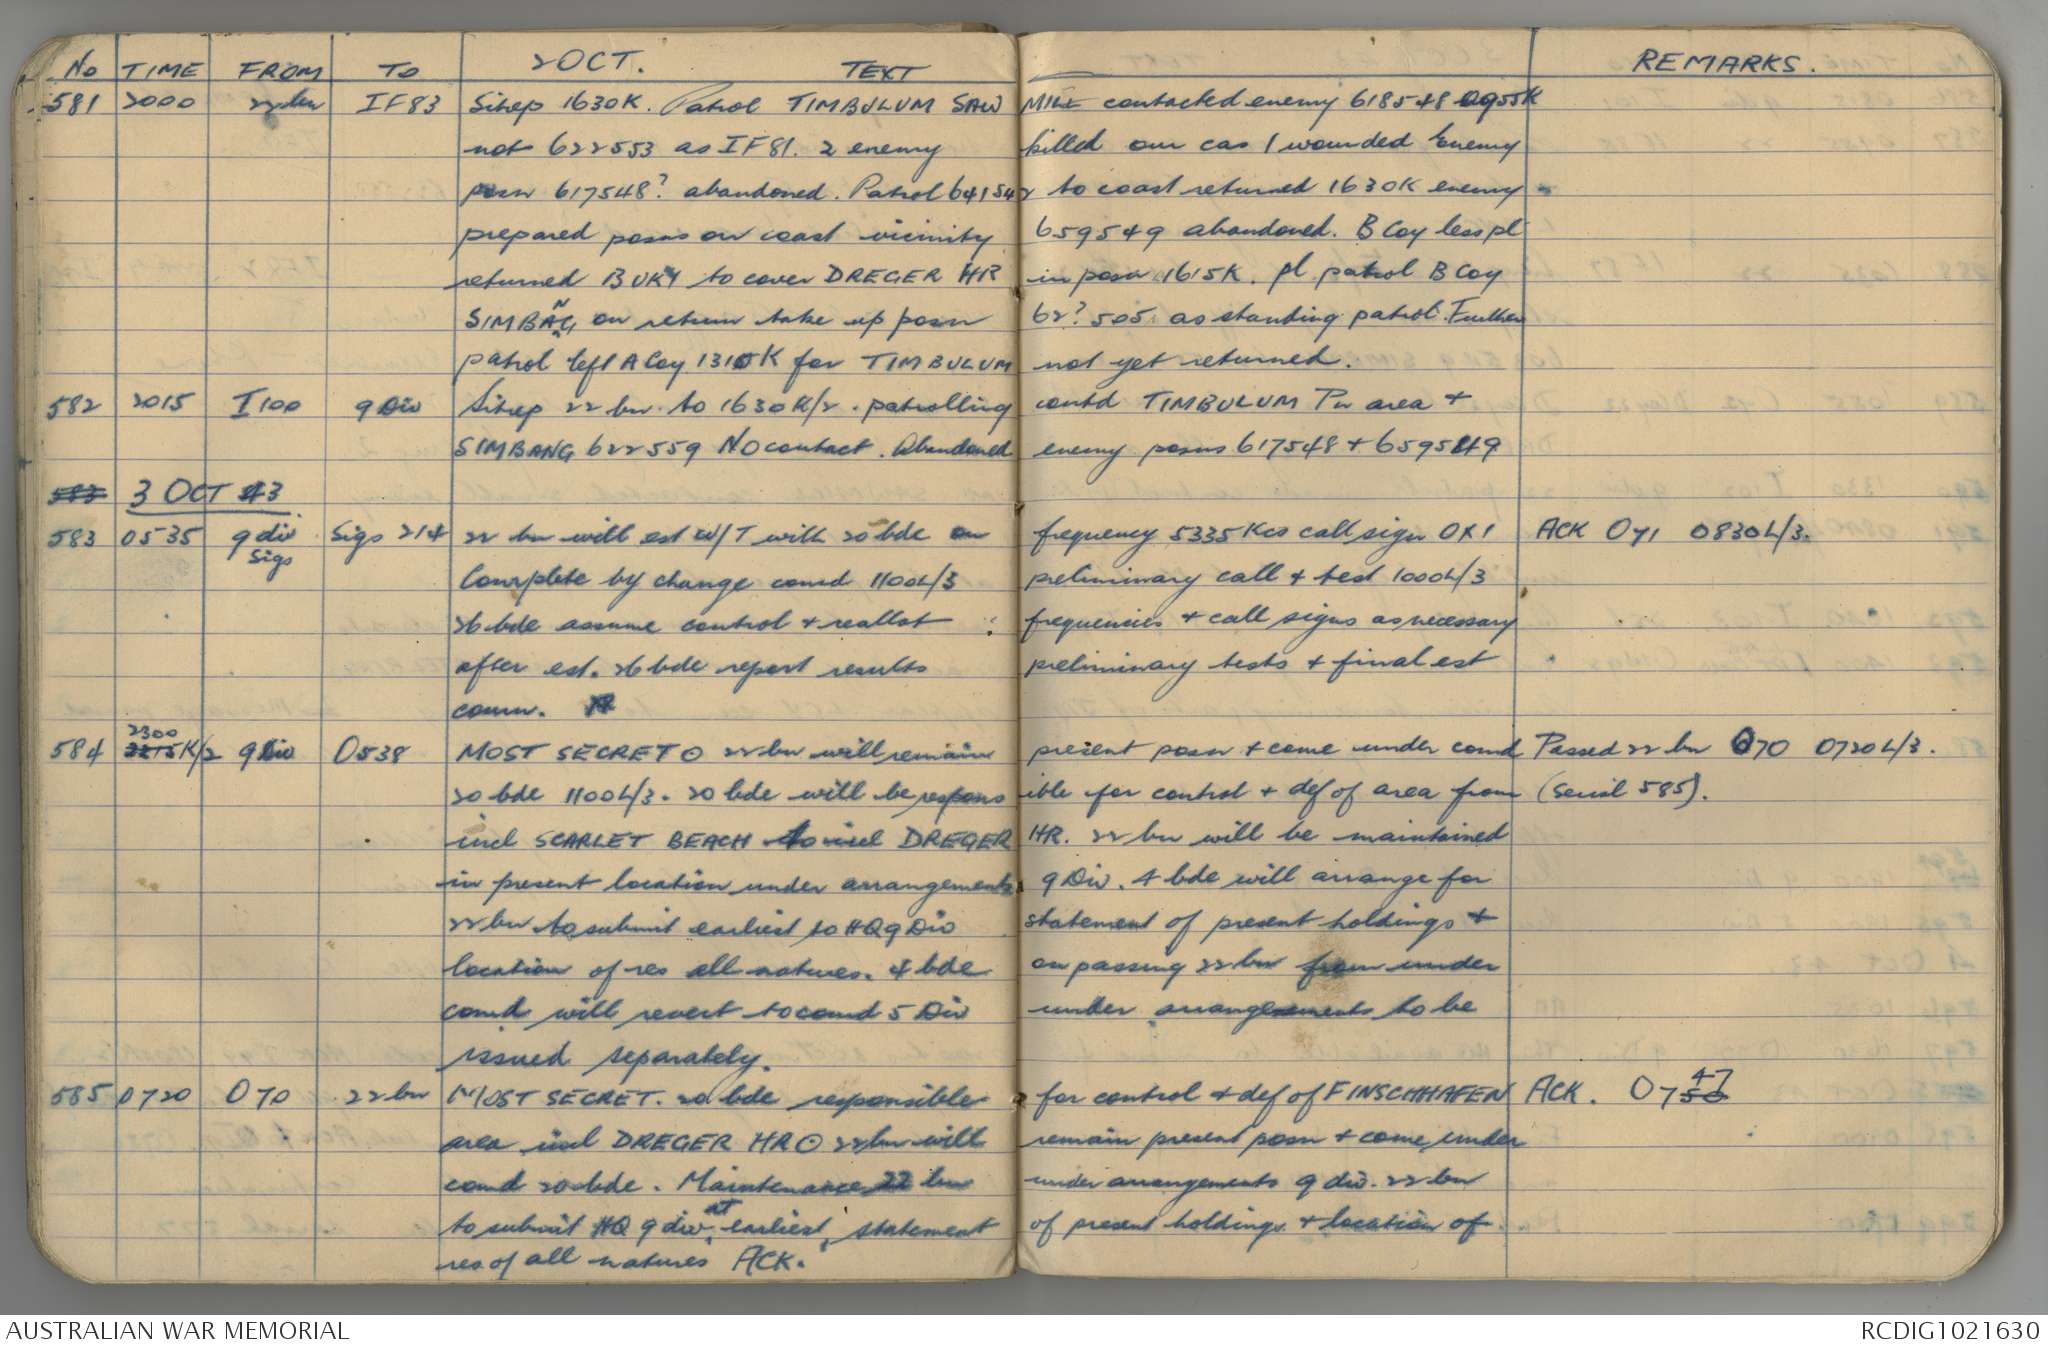 No TIME FROM TO 2 OCT. TEXT REMARKS.
581 2000 22 bn IF83 Sitrep 1630K. Patrol TIMBULUM SAW MILL contacted enemy 618548 0955K
not 622553 as IF81. 2 enemy killed our cas 1 wounded Enemy
posn 617548? abandoned. Patrol 641542 to coast returned 1630K enemy
prepared posns on coast vicinity 659549 abandoned. B Coy less pl
returned BUKI to cover DREGER HR in posn 1615K. pl patrol B Coy
SIMBANG on return take up posn 62? 505 as standing patrol. Further
patrol left A Coy 1310K for TIMBULUM not yet returned.
582 2015 I100 9 Div Sitrep 22 bn to 1630K/2. patrolling contd TIMBULUM Pn area +
SIMBANG 622559 No contact. Abandoned enemy posns 617548 + 659549
583 3 OCT 43
583 0535 9 div Sigs Sigs 214 22 bn will est W/T with 20 bde on frequency 5335 Kcs call sign OX1 ACK Oy1 0830L/3.
Complete by change comd 1100L/3 preliminary call + test 1000L/3
26 bde assume control + reallot frequencies + call signs as necessary
after est. 26 bde report results preliminary tests + final est
comn.
584 2300 2215K/2 9 Div O538 MOST SECRET O 22 bn will remain present posn + come under comd Passed 22 bn O70 0720L/3.
20 bde 1100L/3. 20 bde will be respons ible for control + def of area from (Serial 585).
incl SCARLET BEACH to incl DREGER HR. 22 bn will be maintained
in present location under arrangements 9 Div. 4 bde will arrange for
22 bn to submit earliest to HQ 9 Div statement of present holdings +
location of res all natures. 4 bde on passing 22 bn from under
comd will revert to comd 5 Div under arrangements to be
issued separately.
585 0720 O70 22 bn MOST SECRET. 20 bde responsible for control + def of FINSCHHAFEN ACK. 0747 50
area incl DREGER HR O 22 bn will remain present posn + come under
comd 20 bde. Maintenance 22 bn under arrangements 9 div. 22 bn
to submit HQ 9 div at earliest, statement of present holdings + location of
res of all natures ACK.
AUSTRALIAN WAR MEMORIAL RCDIG1021630